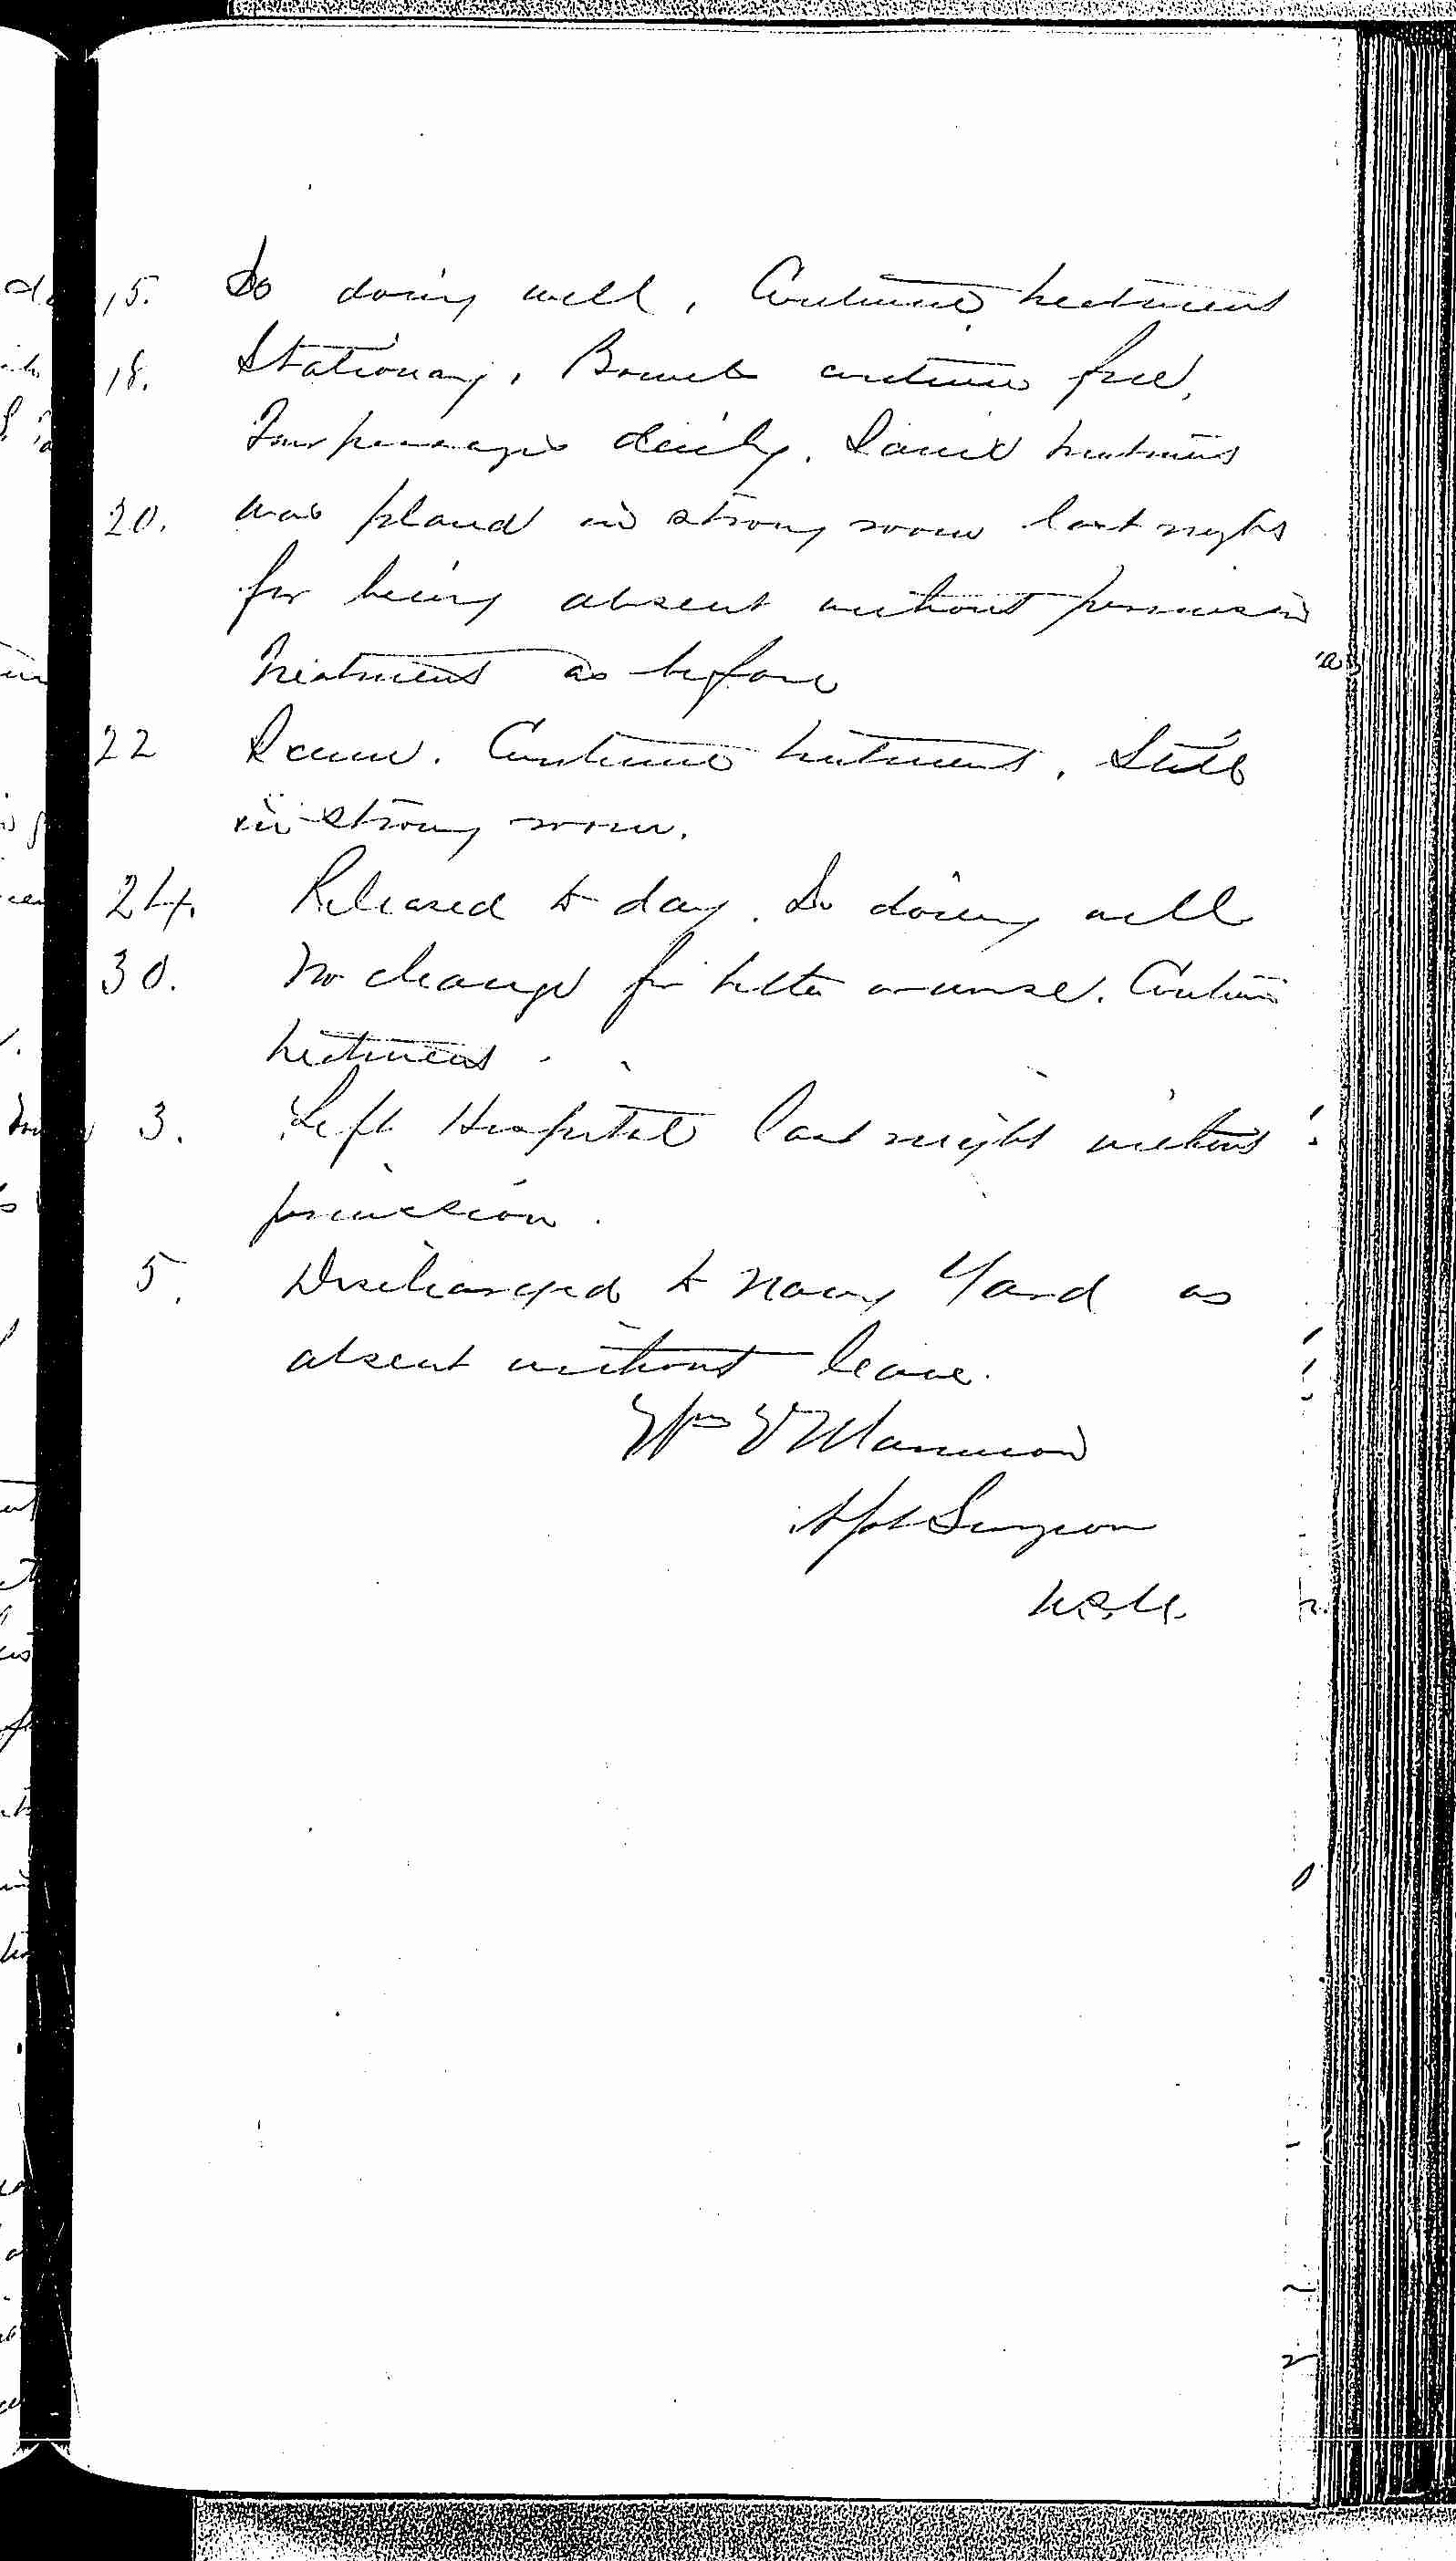 15. Is doing well. Continue treatment
18. Stationary. Bowels continue free.
Four passages daily. Same treatment
20. Was placed in strong room last night
for being absent without permission
Treatment as before
22 Same. Continue treatment. Still
in strong room.
24. Released to day. Is doing well
30. No change for better or worse. Continue
treatment.
3. Left Hospital last night without
permission.
5. Discharged to Navy Yard as
absent without leave.
Wm
Asst Surgeon
U.S.N.